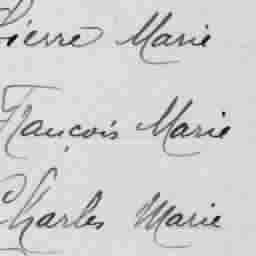 Pierre Marie
François Marie
Charles Marie